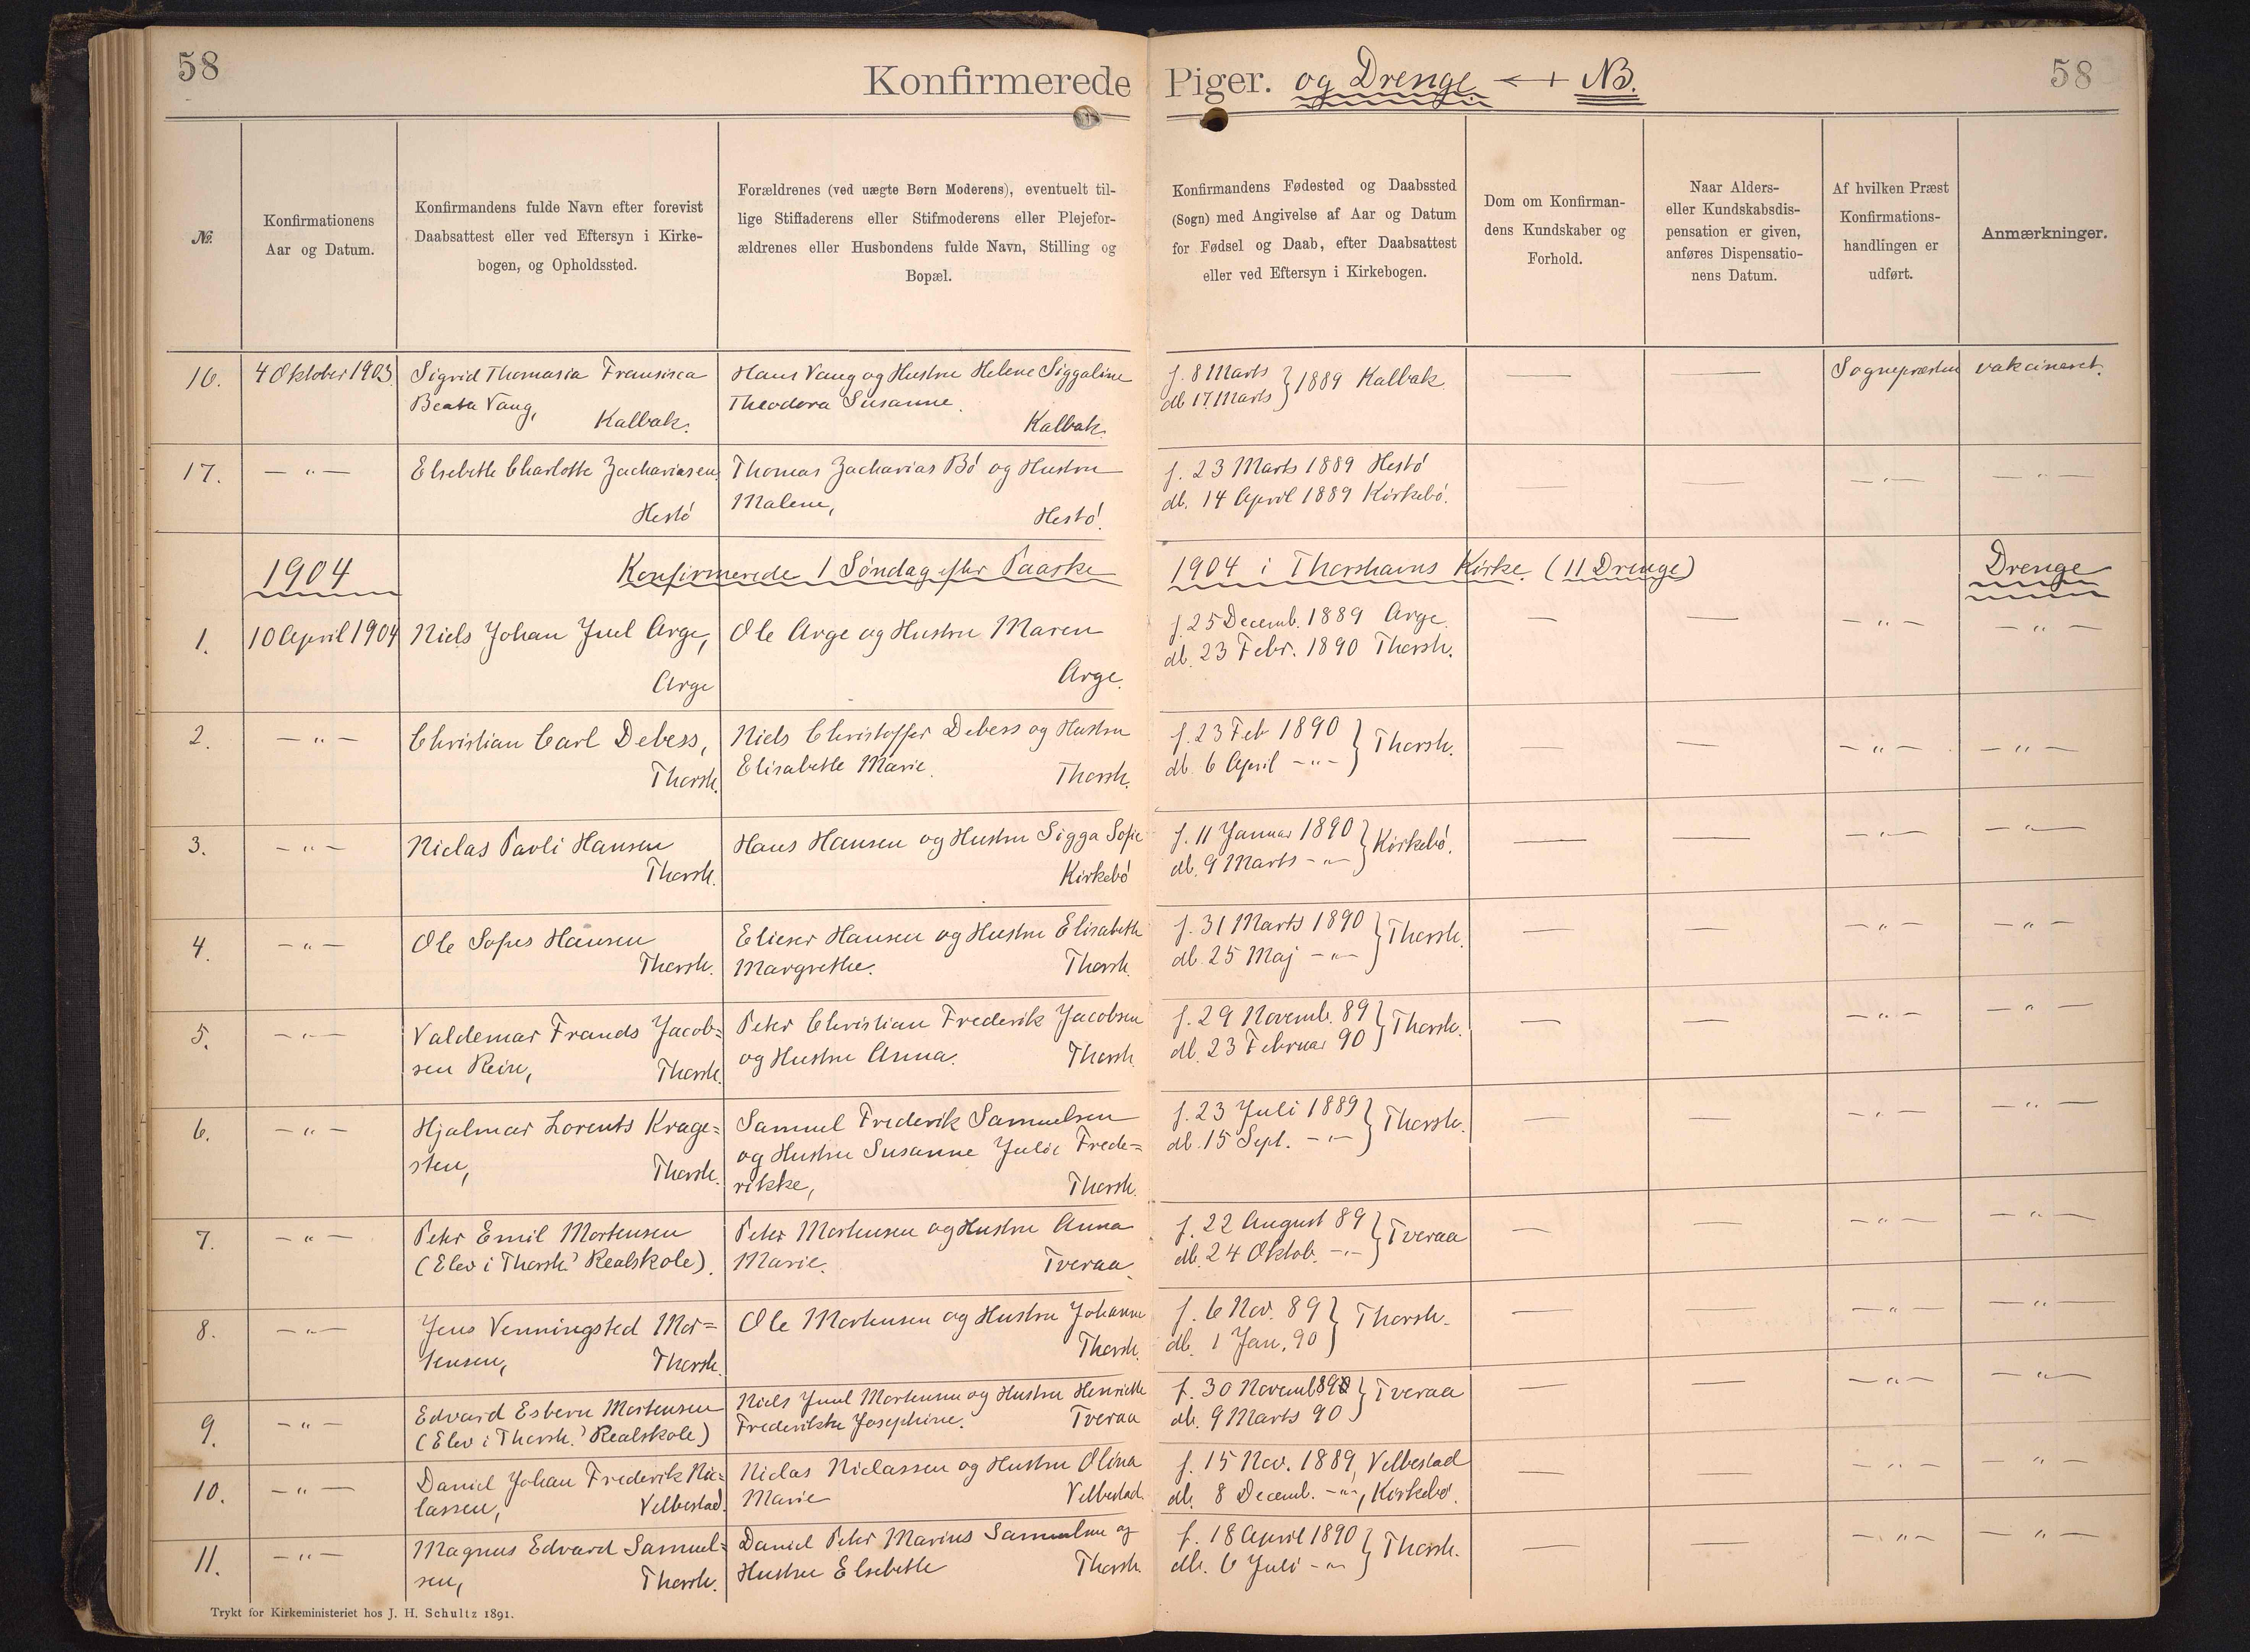 58
Konfirmerede Piger. og Drenge ←+ NB.
58
№
Konfirmationens
Aar og Datum.
Konfirmandens fulde Navn efter forevist
Daabsattest eller ved Eftersyn i Kirke-
bogen, og Opholdssted.
Forældrenes (ved uægte Børn Moderens), eventuelt til-
lige Stiffaderens eller Stifmoderens eller Plejefor-
ældrenes eller Husbondens fulde Navn, Stilling og
Bopæl.
Konfirmandens Fødested og Daabssted
(Sogn) med Angivelse af Aar og Datum
for Fødsel og Daab, efter Daabsattest
eller ved Eftersyn i Kirkebogen.
Dom om Konfirman-
dens Kundskaber og
Forhold.
Naar Alders-
eller Kundskabsdis-
pensation er given,
anføres Dispensatio-
nens Datum.
Af hvilken Præst
Konfirmations-
handlingen er
udført.
Anmærkninger.
16.
4 Oktober 1903
Sigrid Thomasia Fransisca
Beata Vang,
Kalbak.
Hans Vang og Hustru Helene Siggaline
Theodora Susanne.
Kalbak.
f. 8 Marts
db 17. Marts } 1889 Kalbak
—
—
Sognepræsten
vakcineret.
17.
— " —
Elsebeth Charlotte Zachariasen,
Hestö
Thomas Zacharias Bö og Hustru
Malene,
Hestö.
f. 23 Marts 1889 Hestö
db. 14 April 1889 Kirkebö.
—
—
— " —
— " —
1904
Konfirmerede 1 Söndag efter Paaske 1904 i Thorshavns Kirke. (11 Drenge)
Drenge
1.
10 April 1904
Niels Johan Juul Arge,
Arge
Ole Arge og Hustru Maren
Arge.
f. 25 Decemb. 1889 Arge.
db. 23 Febr. 1890 Thorsh.
—
—
— " —
— " —
2.
— " —
Christian Carl Debess,
Thorsh.
Niels Christoffer Debess og Hustru
Elisabeth Marie.
Thorsh.
f. 23 Feb 1890
db. 6 April — " — } Thorsh.
—
—
— " —
— " —
3.
— " —
Niclas Pauli Hansen
Thorsh.
Hans Hansen og Hustru Sigga Sofie
Kirkebö
f. 11 Januar 1890
db. 9 Marts — " — } Kirkebö.
—
—
— " —
— " —
4.
— " —
Ole Sofus Hansen
Thorsh.
Elieser Hansen og Hustru Elisabeth
Margrethe.
Thorsh.
f. 31 Marts 1890
db. 25 Maj — " — } Thorsh.
—
—
— " —
— " —
5.
— " —
Valdemar Frands Jacob=
sen Rein,
Thorsh.
Peter Christian Frederik Jacobsen
og Hustru Anna.
Thorsh.
f. 29 Novemb. 89
db. 23 Februar 90 } Thorsh.
—
—
— " —
— " —
6.
— " —
Hjalmar Lorents Krage=
sten,
Thorsh.
Samuel Frederik Samuelsen
og Hustru Susanne Julie Frede=
rikke,
Thorsh.
f. 23 Juli 1889
db. 15 Sept. — " — } Thorsh.
—
—
— " —
— " —
7.
— " —
Peter Emil Mortensen
(Elev i Thorsh.' Realskole).
Peter Mortensen og Hustru Anna
Marie.
Tveraa.
f. 22 August 89
db. 24 Oktob. — " — } Tveraa
—
—
— " —
— " —
8.
— " —
Jens Venningsted Mor=
tensen,
Thorsh.
Ole Mortensen og Hustru Johanne
Thorsh.
f. 6 Nov. 89
db. 1 Jan. 90 } Thorsh.
—
—
— " —
— " —
9.
— " —
Edvard Esbern Mortensen
(Elev i Thorsh.' Realskole)
Niels Juul Mortensen og Hustru Henriette
Frederikke Josephine.
Tveraa
f. 30 Novemb
db. 9 Marts 90 } Tveraa
—
—
— " —
— " —
10.
— " —
Daniel Johan Frederik Nic=
lassen,
Velbestad.
Niclas Niclassen og Hustru Olina
Marie
Velbestad.
f. 15 Nov. 1889, Velbestad
db. 8 Decemb. — " —, Kirkebö.
—
—
— " —
— " —
11.
— " —
Magnus Edvard Samuel=
sen,
Thorsh.
Daniel Peter Marius Samuelsen og
Hustru Elsebeth
Thorsh.
f. 18 April 1890
db. 6 Juli — " — } Thorsh.
—
—
— " —
— " —
Trykt for Kirkeministeriet hos J. H. Schultz 1891.